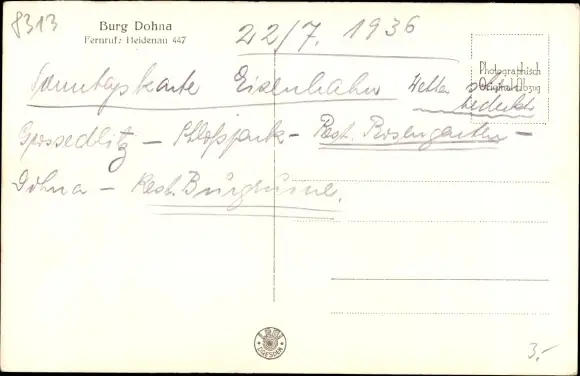 8313
Burg Dohna
Fernruf: Heidenau 447
22/7. 1936
Photographisch
Original-Abzug
Sonntagskarte Eisenbahn Wetter schön
bedeckt
Grossedlitz – Schloßpark – Rest. Rosengarten –
Dohna – Rest. Burgruine.
DRESDEN
3.-